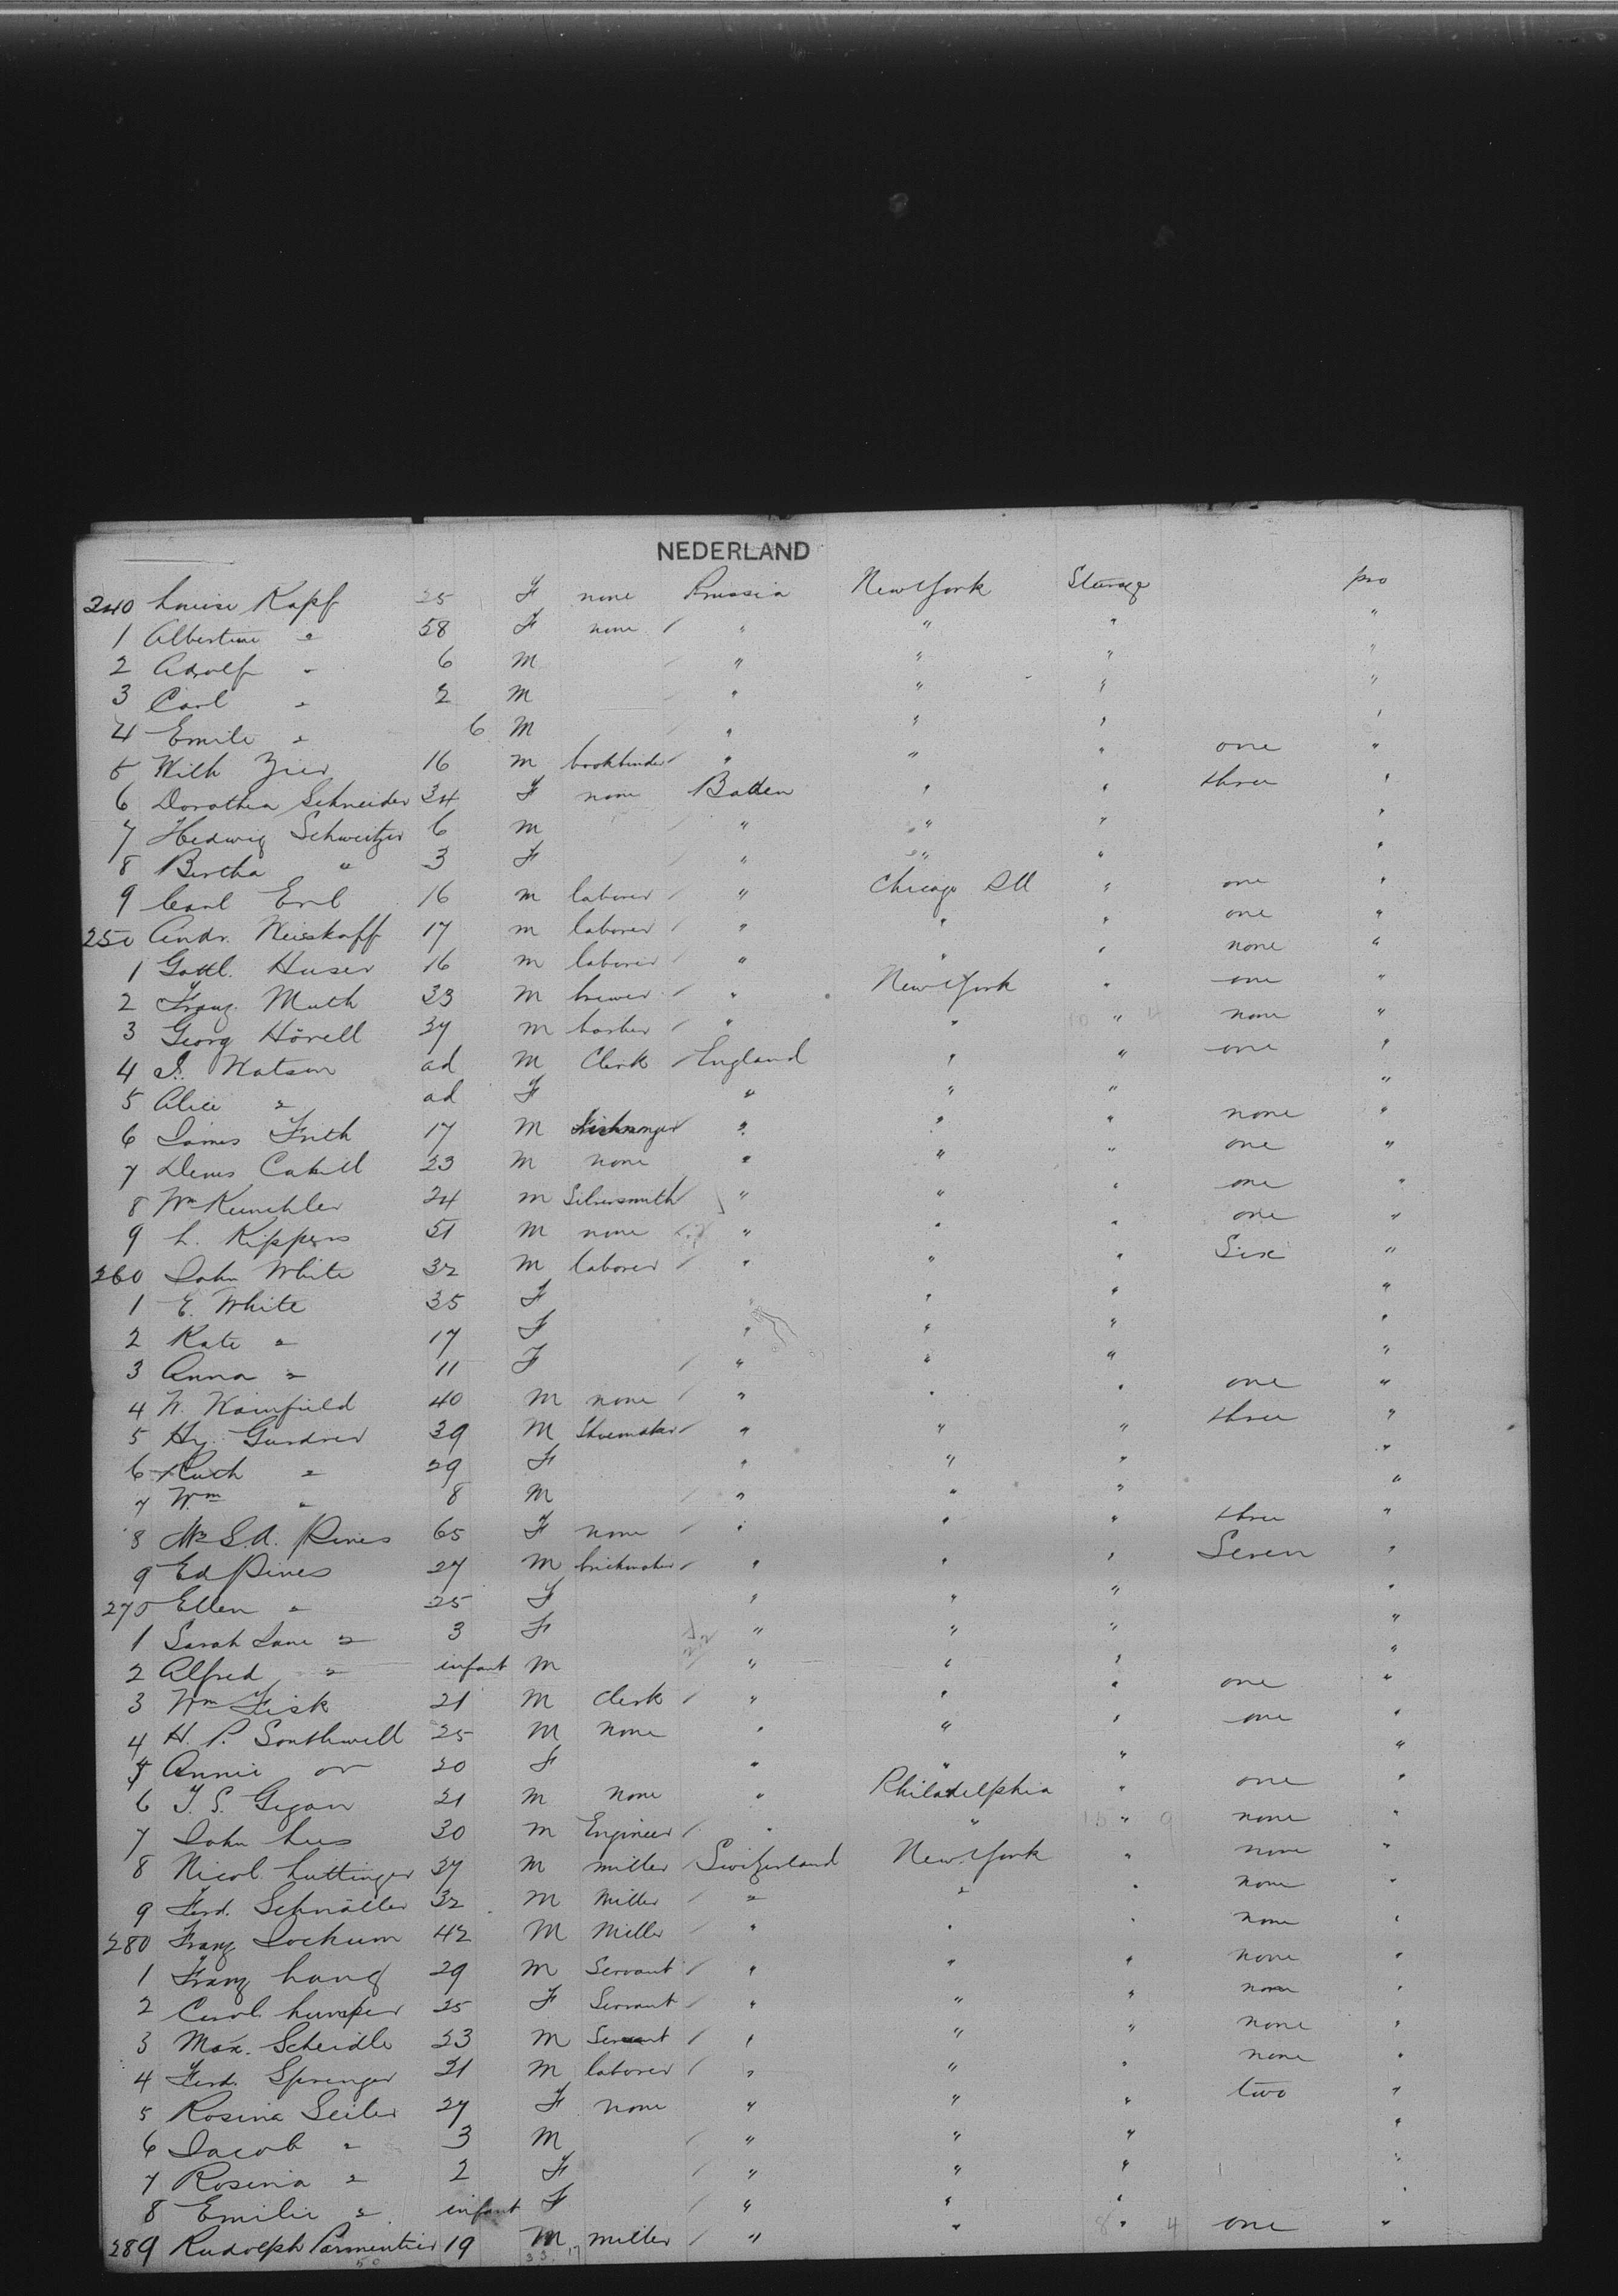 NEDERLAND
240 Louise Kapf 25 F none Prussia New York Steerage pro
1 Albertine " 58 F none " " " "
2 Adolf " 6 M " " " "
3 Carl " 2 M " " " "
4 Emile " 6 M " " " "
5 Wilh Zier 16 m bookbinder " " " one "
6 Dorothea Schneider 34 F none Baden " " three "
7 Hedwig Schweitzer 6 m " " " "
8 Bertha " 3 F " " " "
9 Carl Erb 16 m laborer " Chicago Ill " one "
250 Andr. Neiskaff 17 m laborer " " " one "
1 Gottl. Huser 16 m laborer " " " none "
2 Franz. Muth 33 M brewer " New York " one "
3 Georg Hörell 27 m barber " " " none "
4 J. Watson ad M Clerk England " " one "
5 Alice " ad F " " " "
6 James Frith 17 M " " " none "
7 Denis Cahill 23 M none " " " one "
8 Wm Kuechler 24 m Silversmith " " " one "
9 L. Kippers 51 M none " " " one "
260 John White 32 M laborer " " " Six "
1 E. White 35 F " " " "
2 Kate " 17 F " " " "
3 Anna " 11 F " " " "
4 W. Wainfield 40 M none " " " one "
5 Hy. Gardner 39 M Shoemaker " " " three "
6 Ruth " 29 F " " " "
7 Wm " 8 M " " " "
8 Mrs S.A. Pines 65 F none " " " three "
9 Ed Pines 27 M brickmaker " " " Seven "
270 Ellen " 25 F " " " "
1 Sarah Jane " 3 F " " " "
2 Alfred " infant M " " " "
3 Wm Fisk 21 M Clerk " " " one "
4 H. P. Southwell 25 M none " " " one "
5 Annie " 20 F " " " "
6 T. S. 21 m none " Philadelphia " one "
7 John Lees 30 m Engineer " " " none "
8 Nicol. Luttinger 27 M miller Switzerland New York " none "
9 Ferd. Schnäller 32 M Miller " " " none "
280 Franz Jockum 42 M Miller " " " none "
1 Franz Lang 29 M Servant " " " none "
2 Carol. 25 F Servant " " " none "
3 Max. Scheidle 23 M Servant " " " none "
4 Ferd. Sprenger 21 M laborer " " " none "
5 Rosina Seiler 27 F none " " " two "
6 Jacob " 3 M " " " "
7 Rosina " 2 F " " " "
8 Emilie " infant F " " " "
289 Rudolph Parmentier 19 M miller " " " one "